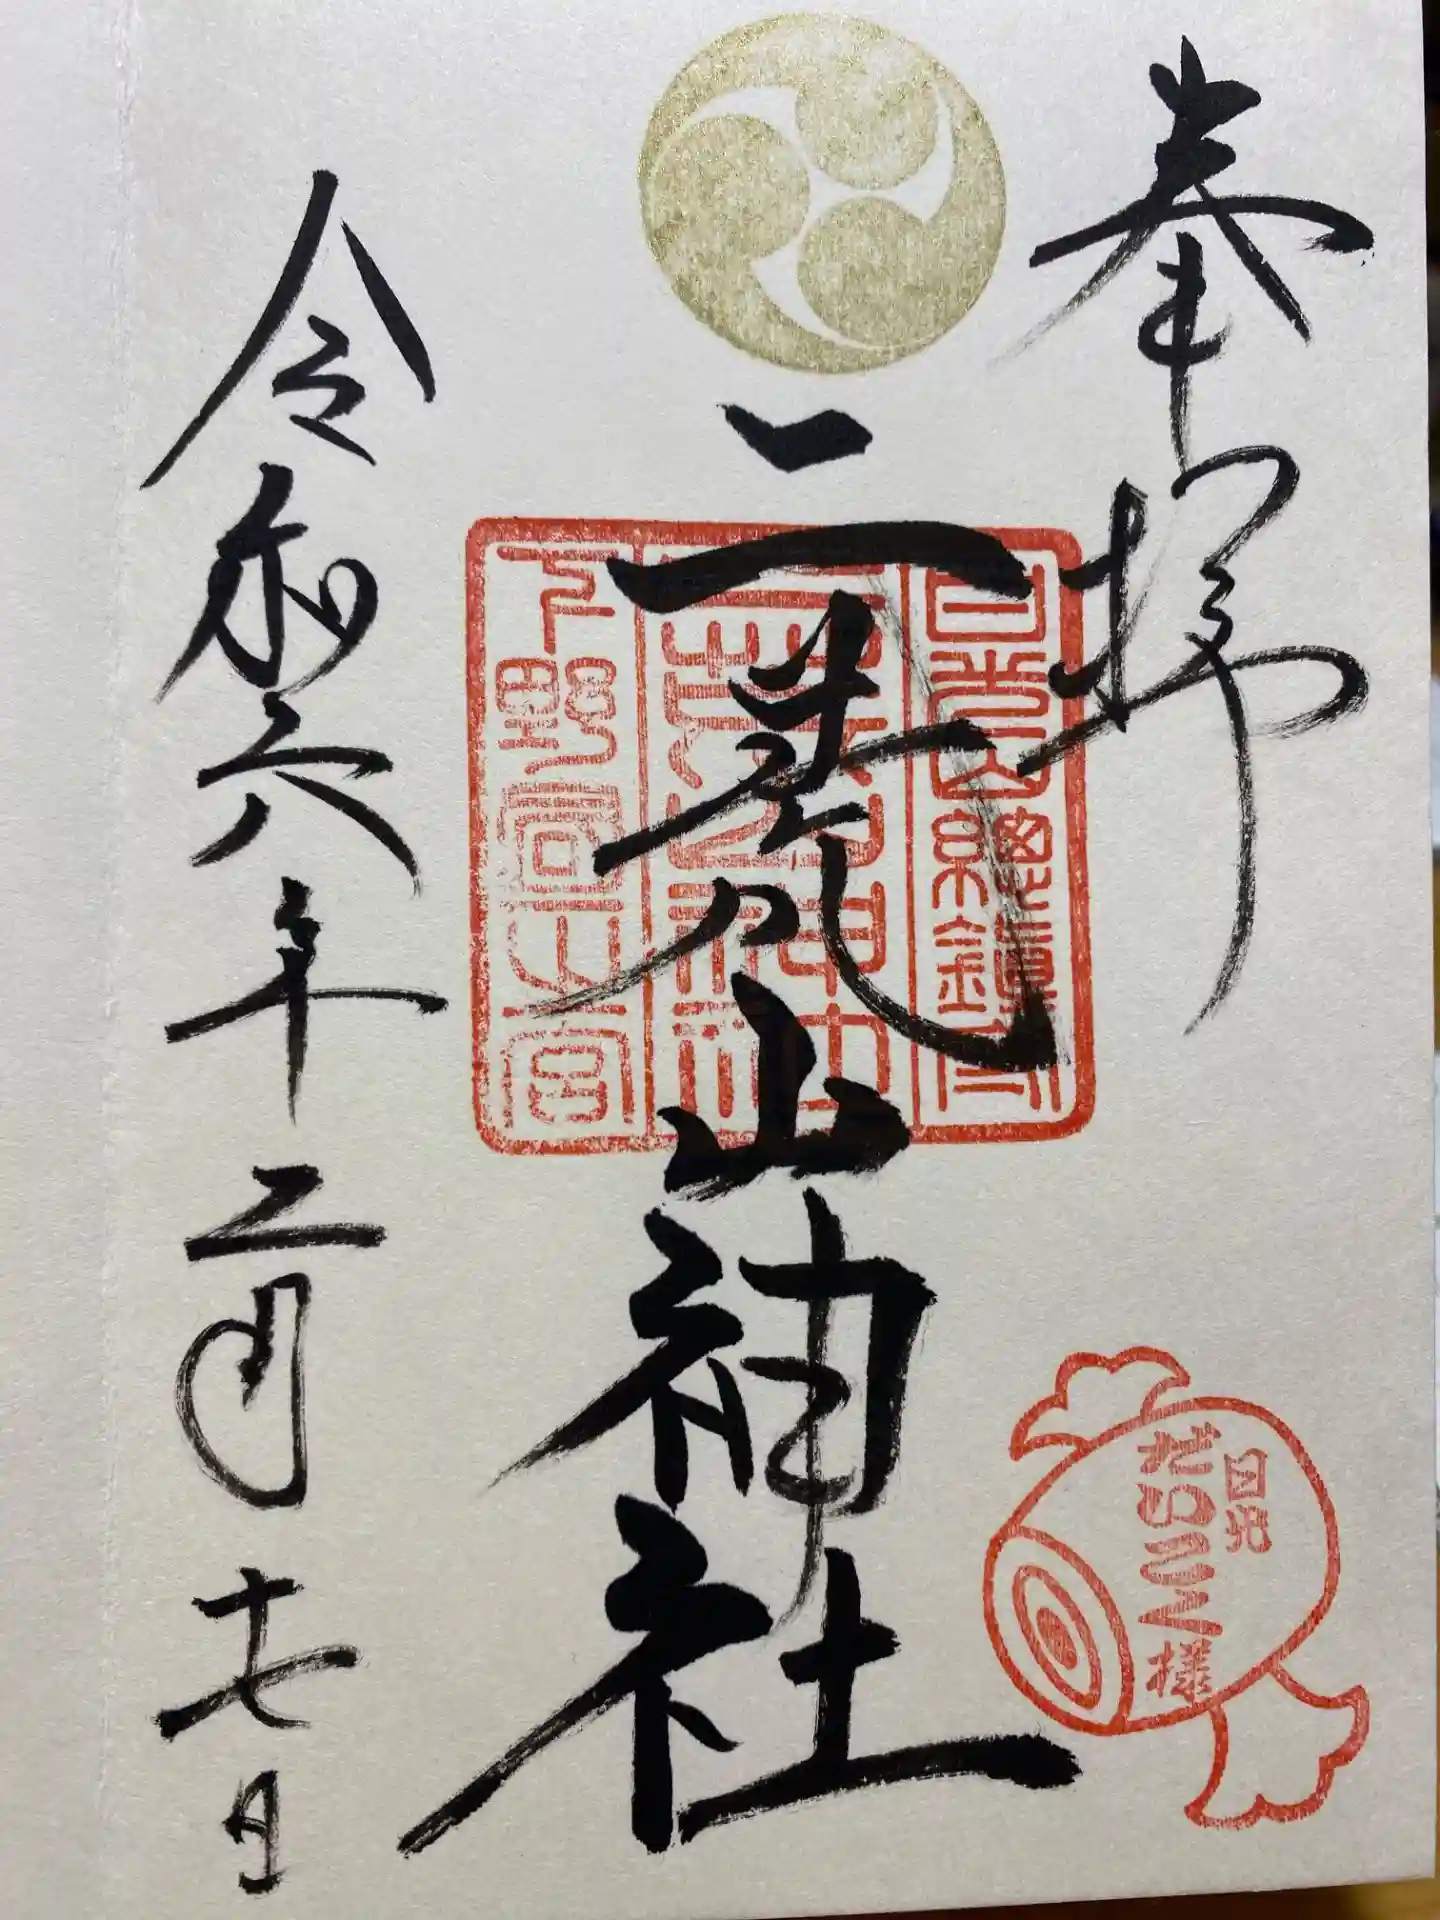 奉拝
日光山總鎮守
二荒山神社
下野國一之宮
日光
だいこく様
令和六年二月十七日